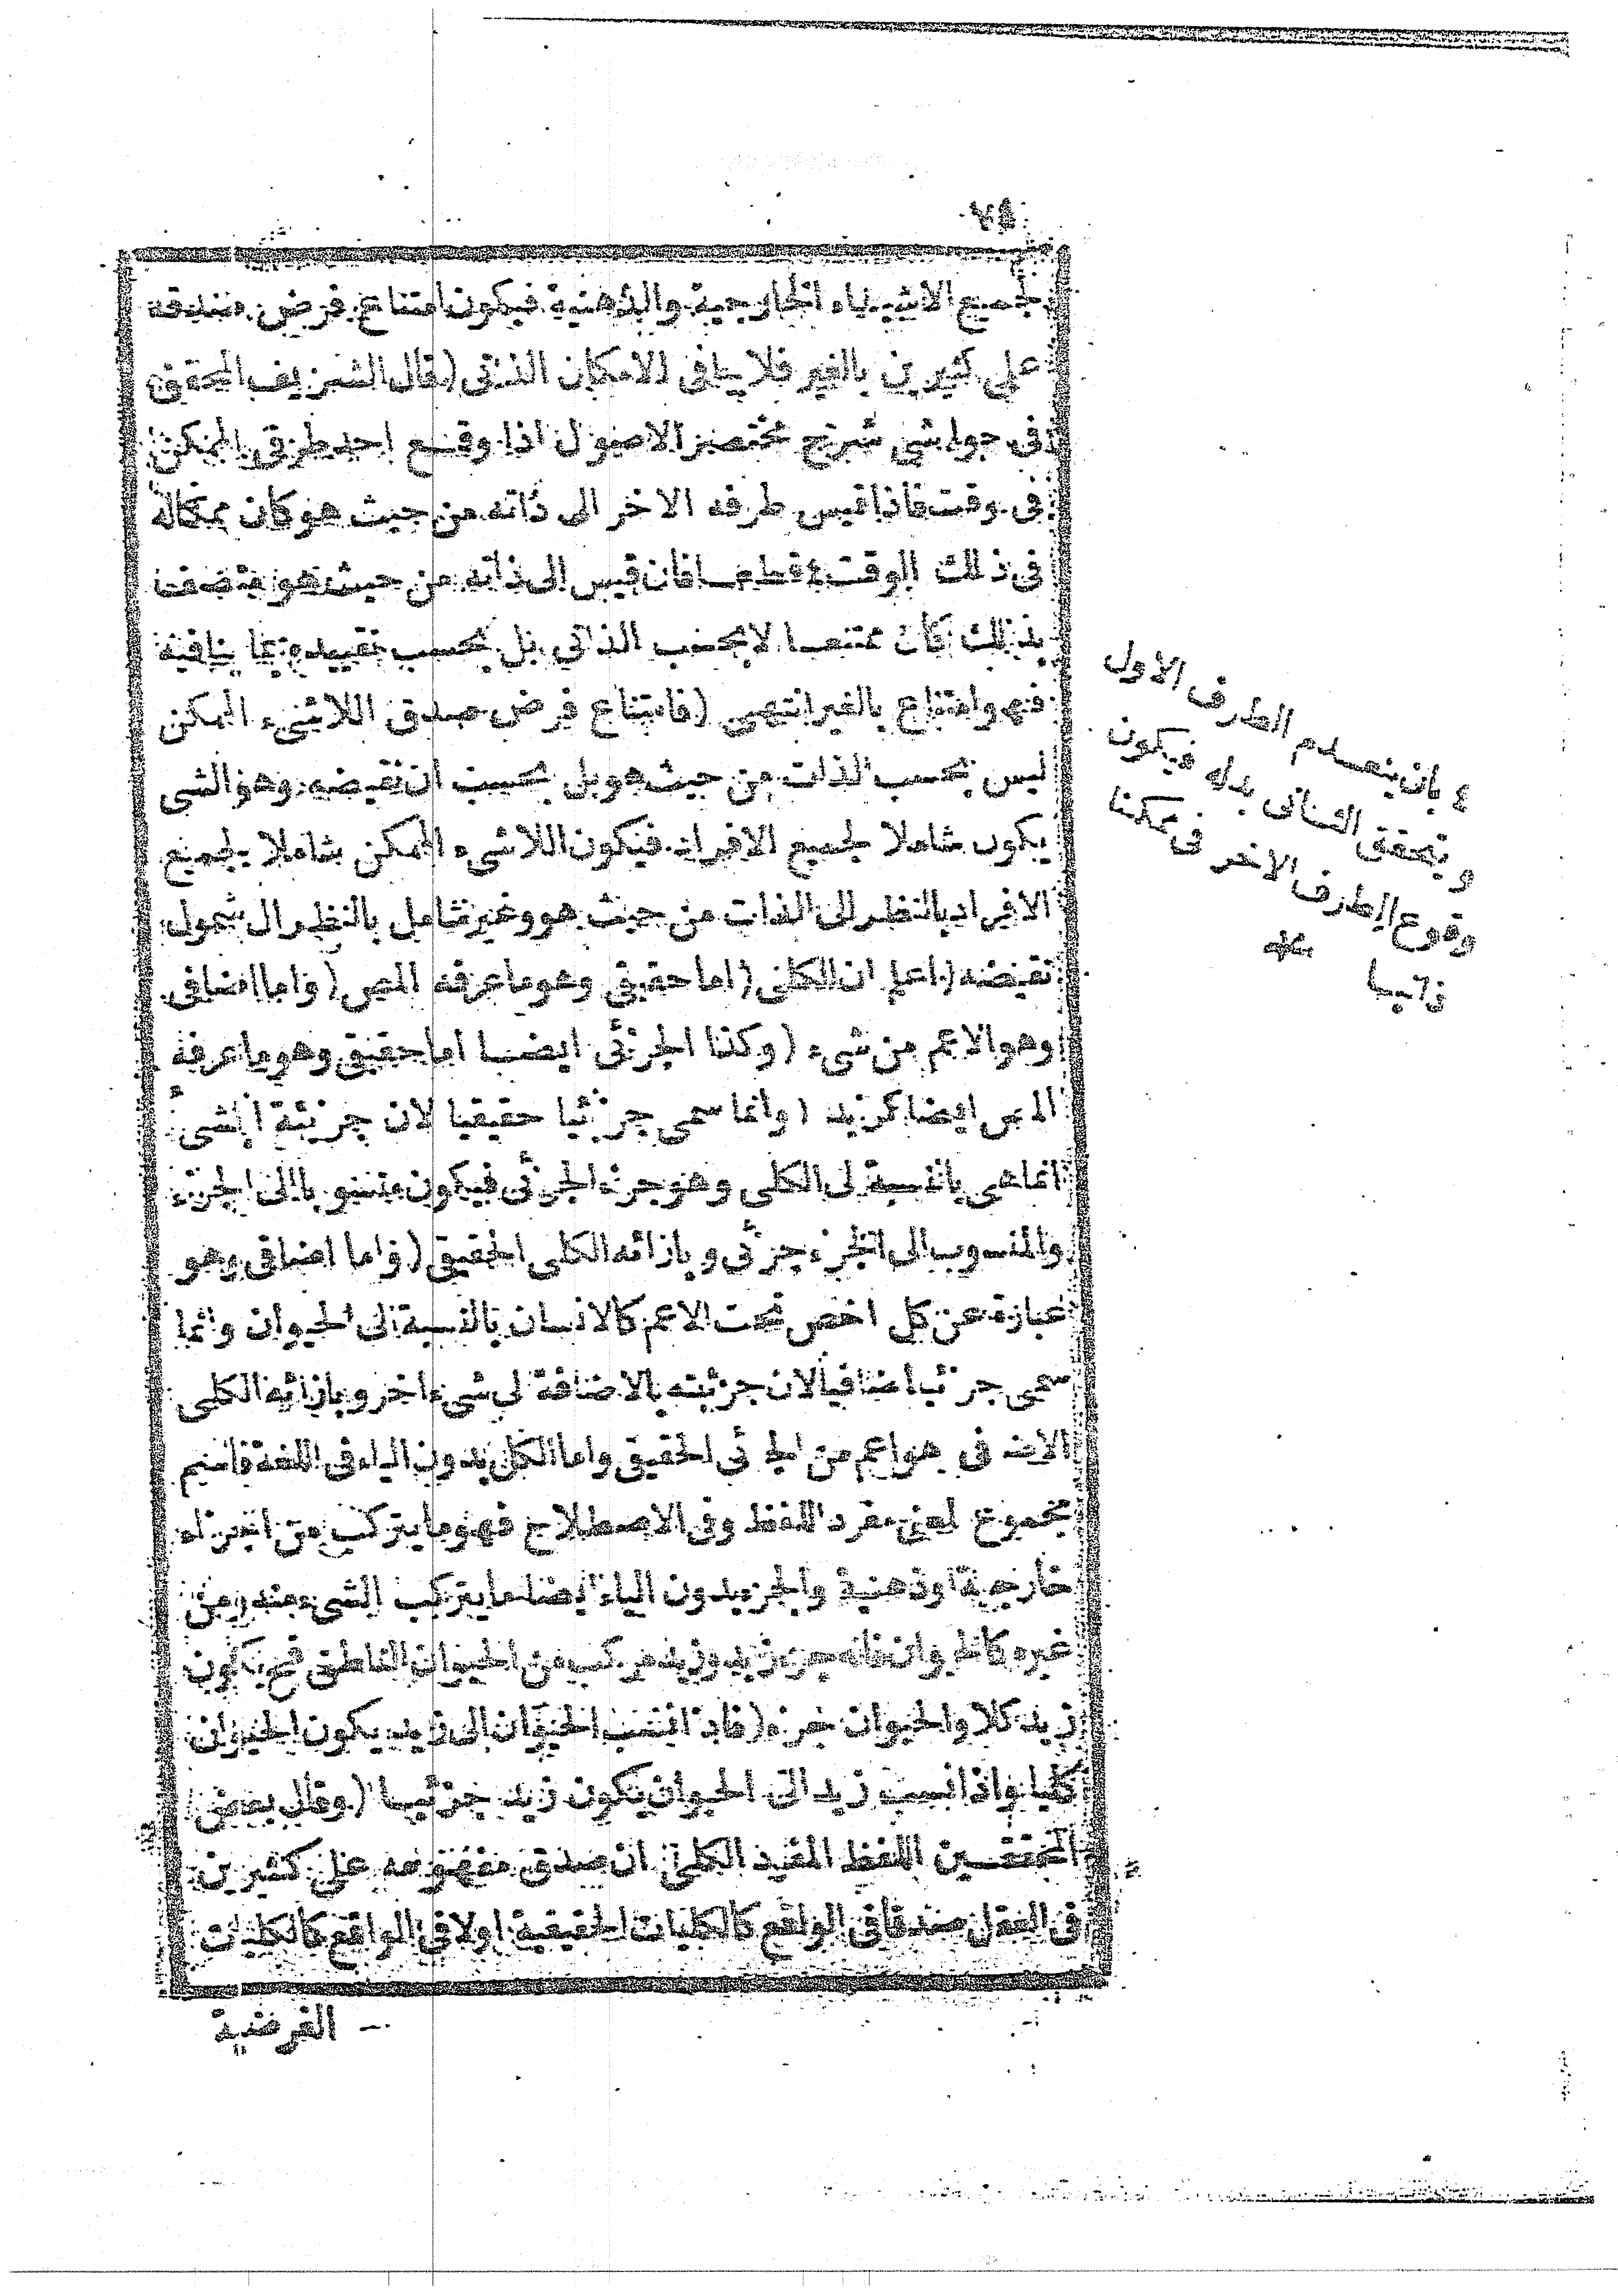 لجميع الاشياء الخارجية والذهنية فيكون امتناع فرض صدقه
على كثيرين بالغير فلا ينافى الامكان الذاتى (قال الشريف المحقق
فى حواشى شرح مختصر الاصول اذا وقع احد طرفى الممكن
فى وقت فاذا قيس طرفه الاخر الى ذاته من حيث هو كان ممكنا له
فى ذلك الوقت ٤ قطعا فان قيس الى ذاته من حيث هو متصف
بذلك كان ممتنعا لا بحسب الذاتى بل بحسب تقييده بما ينافيه
فهو امتناع بالغير انتهى (فامتناع فرض صدق اللاشىء الممكن
ليس بحسب الذات من حيث هو بل بحسب ان نقيضه وهو الشى
يكون شاملا لجميع الافراد فيكون اللاشىء الممكن شاملا لجميع
الافراد بالنظر الى الذات من حيث هو وغير شامل بالنظر ال شمول
نقيضه (اعلم ان الكلى (اما حقيقى وهو ما عرفه المص (واما اضافى
وهو الاعم من شىء (وكذا الجزئى ايضا اما حقيقى وهو ما عرفه
المص ايضا كزيد (وانما سمى جزئيا حقيقيا لان جزئية الشى
انما هى بالنسبة لى الكلى وهو جزء الجزئى فيكون منسوبا الى الجزء
والمنسوب الى الجزء جزئى وبازائه الكلى الحقيقى (واما اضافى وهو
عبارة عن كل اخص تحت الاعم كالانسان بالنسبة الى الحيوان وانما
سمى جزئيا اضافيا لان جزئيته بالاضافة لى شىء اخر وبازائه الكلى
الاضافى هو اعم من الجزئى الحقيقى واما الكل بدون الياء فى اللغة فاسم
مجموع لمعنى مفرد اللفظ وفى الاصطلاح فهو ما يتركب من اجزاء
خارجية او ذهنية والجزء بدون الياء ايضا ما يتركب الشىء منه ومن
غيره كالحيوان فانه جزء زيد وزيد مركب من الحيوان الناطق فح يكون
زيد كلا والحيوان جزء (فاذا انتسب الحيوان الى زيد يكون الحيوان
كليا واذا انسب زيد الى الحيوان يكون زيد جزئيا (وقال بعض
المحققين اللفظ المفرد الكلى ان صدق مفهومه على كثيرين
فى العقل صدقا فى الواقع كالكليات الحقيقية او لا فى الواقع كالكليات
الفرضية
٤ بان ينعدم الطرف الاول
ويتحقق الثانى بدله فيكون
وقوع الطرف الاخر فى ممكنا
ذاتيا